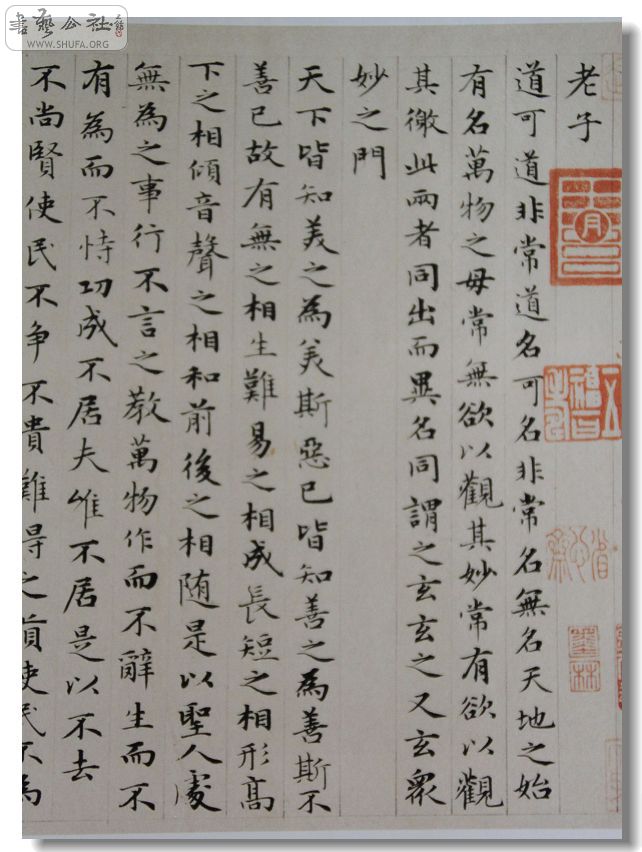 書藝公社
WWW.SHUFA.ORG
老子
道可道非常道名可名非常名無名天地之始
有名萬物之母常無欲以觀其妙常有欲以觀
其徼此兩者同出而異名同謂之玄玄之又玄眾
妙之門
天下皆知美之為美斯惡已皆知善之為善斯不
善已故有無之相生難易之相成長短之相形高
下之相傾音聲之相和前後之相随是以聖人處
無為之事行不言之教萬物作而不辭生而不
有為而不恃功成不居夫唯不居是以不去
不尚賢使民不争不貴難得之貨使民不為
墨林